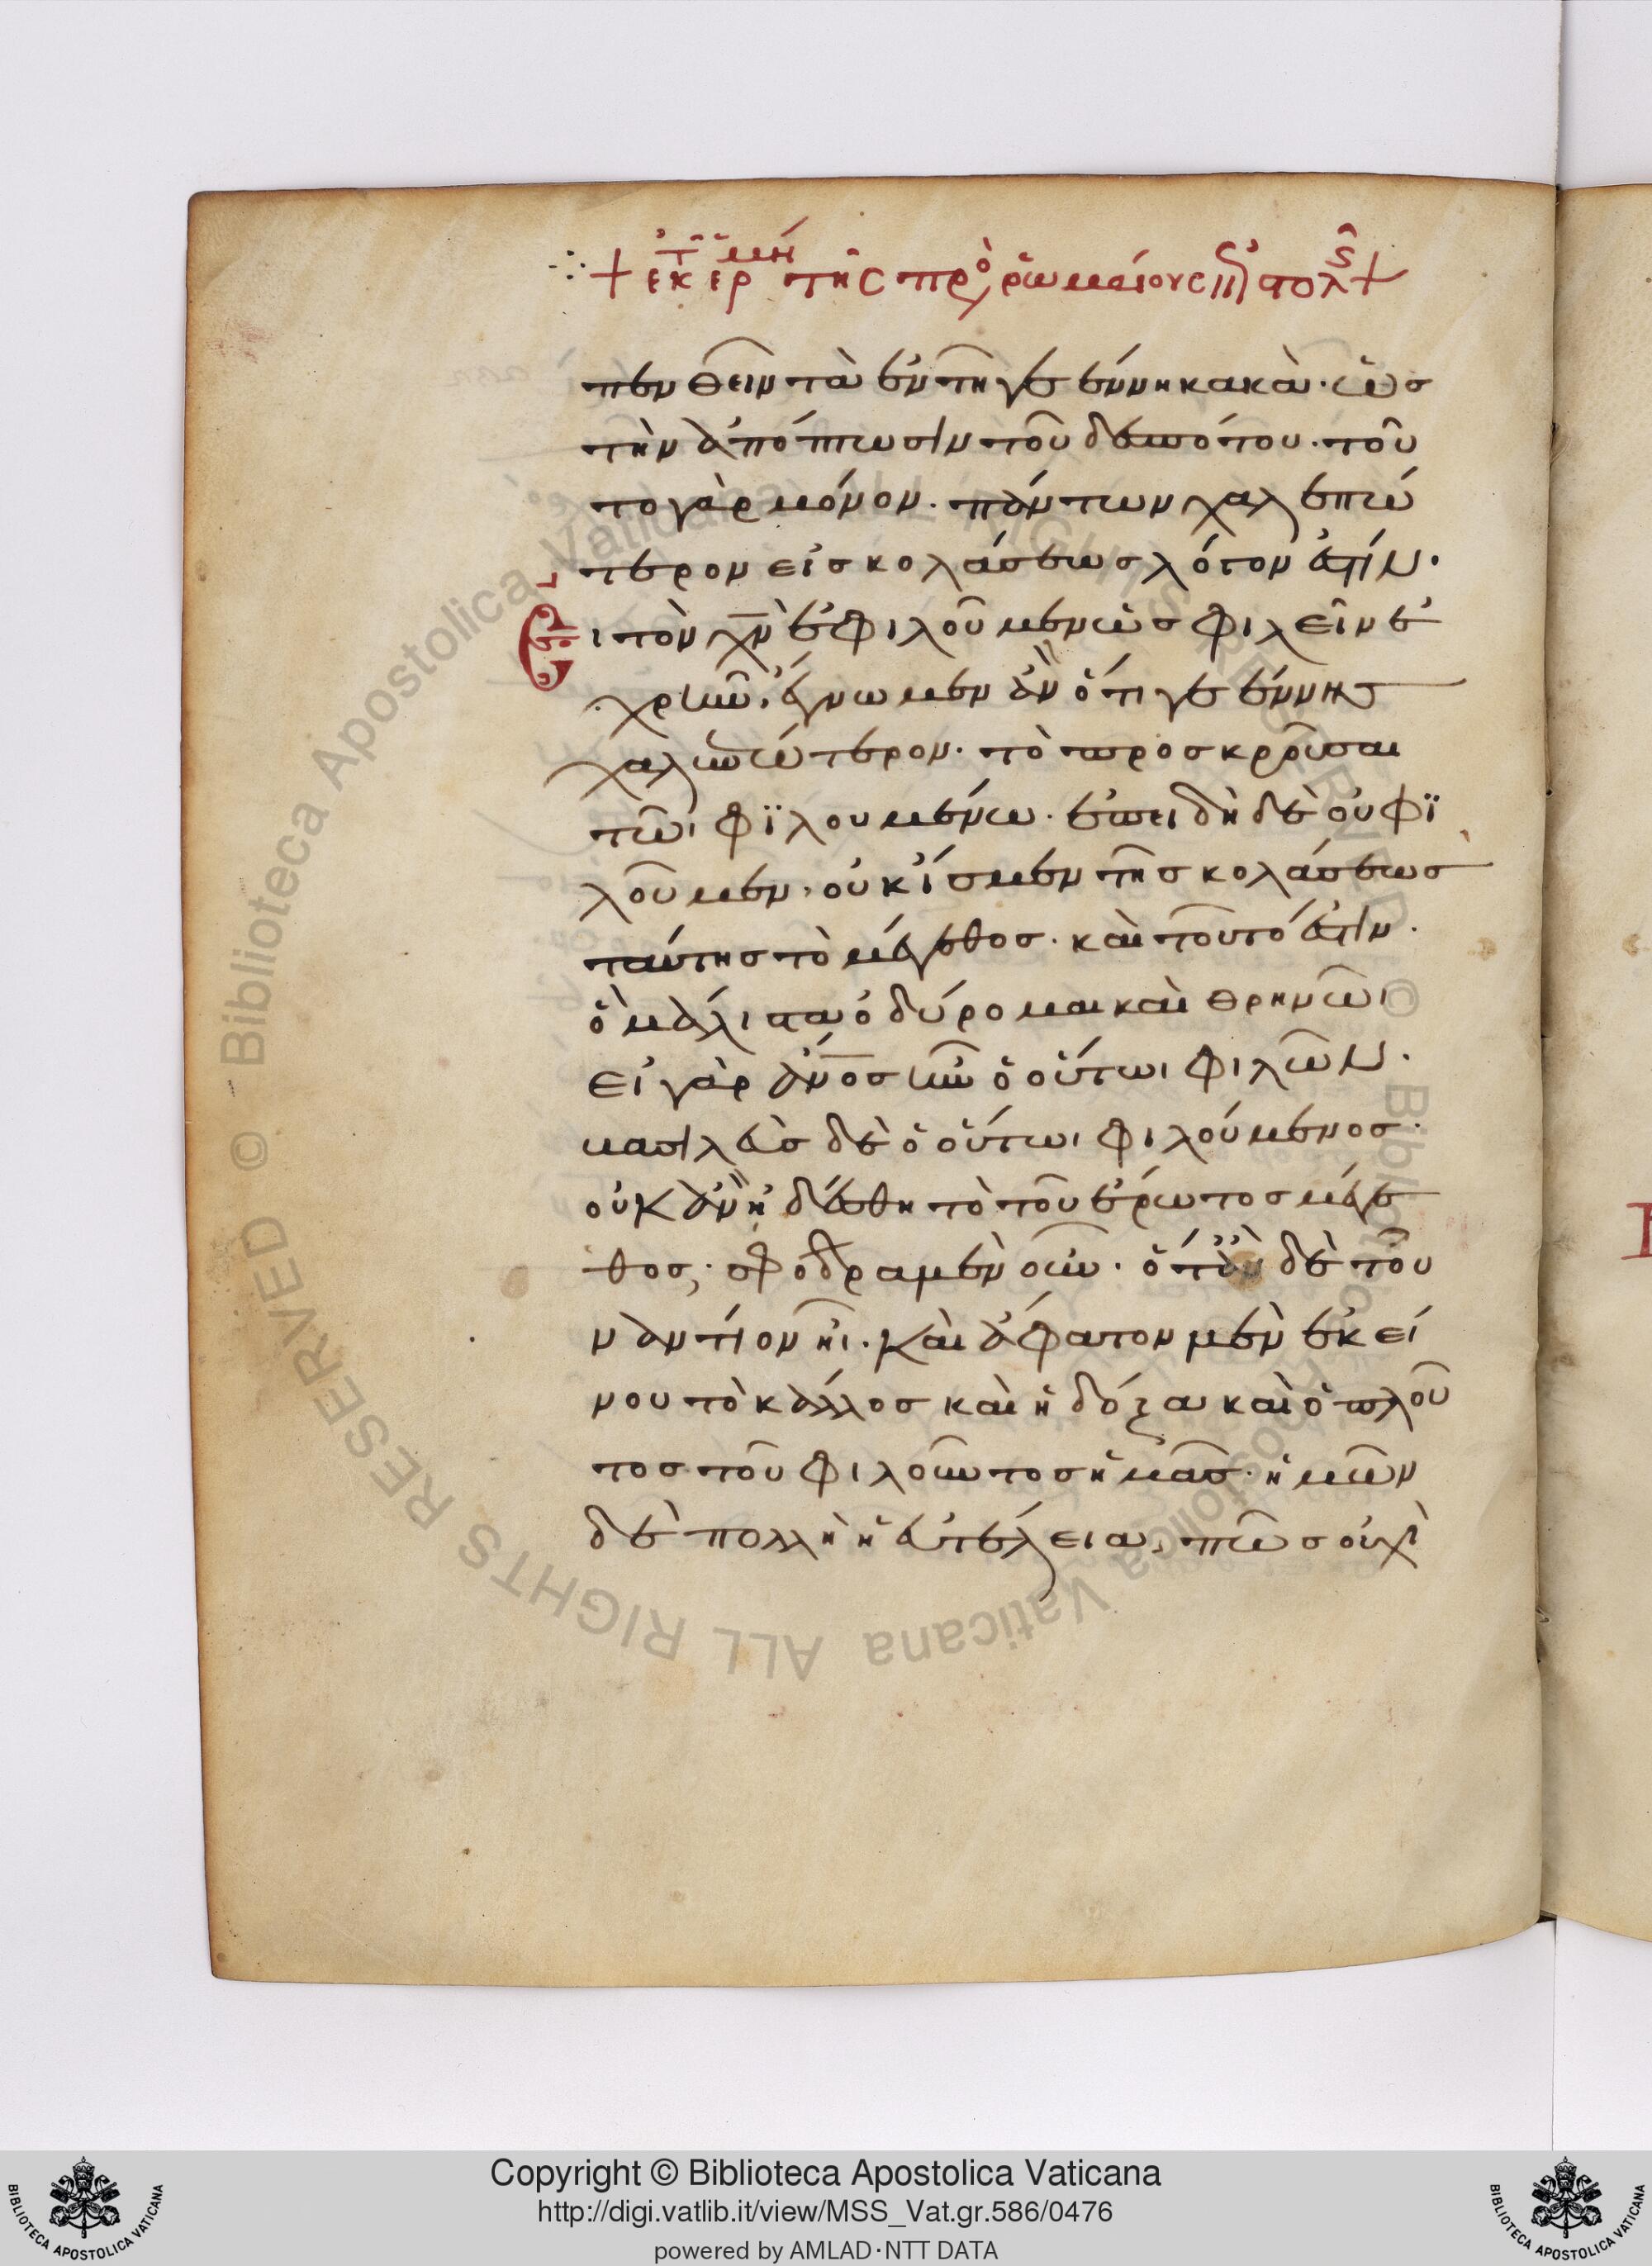 + ἐκ τῆς ἑρμή τῆς πρὸς ῥωμαίους ἐπιστολῆς +
πενθεῖν τὰ ἐν τῆ γεέννη κακὰ· ὡσ
τὴν ἀπόπτωσιν τοῦ δεσπότου· τοῦ
το γὰρ μόνον· πάντων χαλεπώ
τερον εἰσ κολάσεωσ λόγον ἐστίν·
Εἰ τὸν χν ἐφιλοῦμεν ὡσ φιλεῖν ἐ
χρῆν, ἔγνωμεν ἂν ὅτι γεέννησ
χαλεπώτερον· τὸ προσκροῦσαι
τῶι φϊλουμένω· ἐπειδὴ δὲ οὐ φϊ
λοῦμεν, οὐκ ἴσμεν τῆσ κολάσεωσ
ταύτησ τὸ μέγεθοσ· καὶ τοῦτό ἐστιν·
ὃ μάλιστα ὀδύρομαι καὶ θρηνῶι
εἰ γὰρ ἄνοσ ἦν ὁ οὕτωι φιλῶν·
βασιλεὺσ δὲ ὁ οὕτωι φιλούμενοσ·
οὐκ ἂν ἠδέσθη τὸ τοῦ ἔρωτοσ μέγε
θοσ, σφόδρα μὲν οὖν· ὅταν δὲ τοῦ
ναντίον ἦι· καὶ ἄφατον μὲν ἐκεί
νου τὸ κάλλοσ καὶ ἡ δόξα καὶ ὁ πλοῦ
τοσ τοῦ φιλοῦντοσ ἡμᾶσ· ἡμῶν
δὲ πολλὴ ἡ εὐτέλεια, πῶσ οὐχὶ
Copyright © Biblioteca Apostolica Vaticana
http://digi.vatlib.it/view/MSS_Vat.gr.586/0476
powered by AMLAD·NTT DATA
BIBLIOTECA APOSTOLICA VATICANA
BIBLIOTECA APOSTOLICA VATICANA
© Biblioteca Apostolica Vaticana ALL RIGHTS RESERVED
© Biblioteca Apostolica Vaticana ALL RIGHTS RESERVED